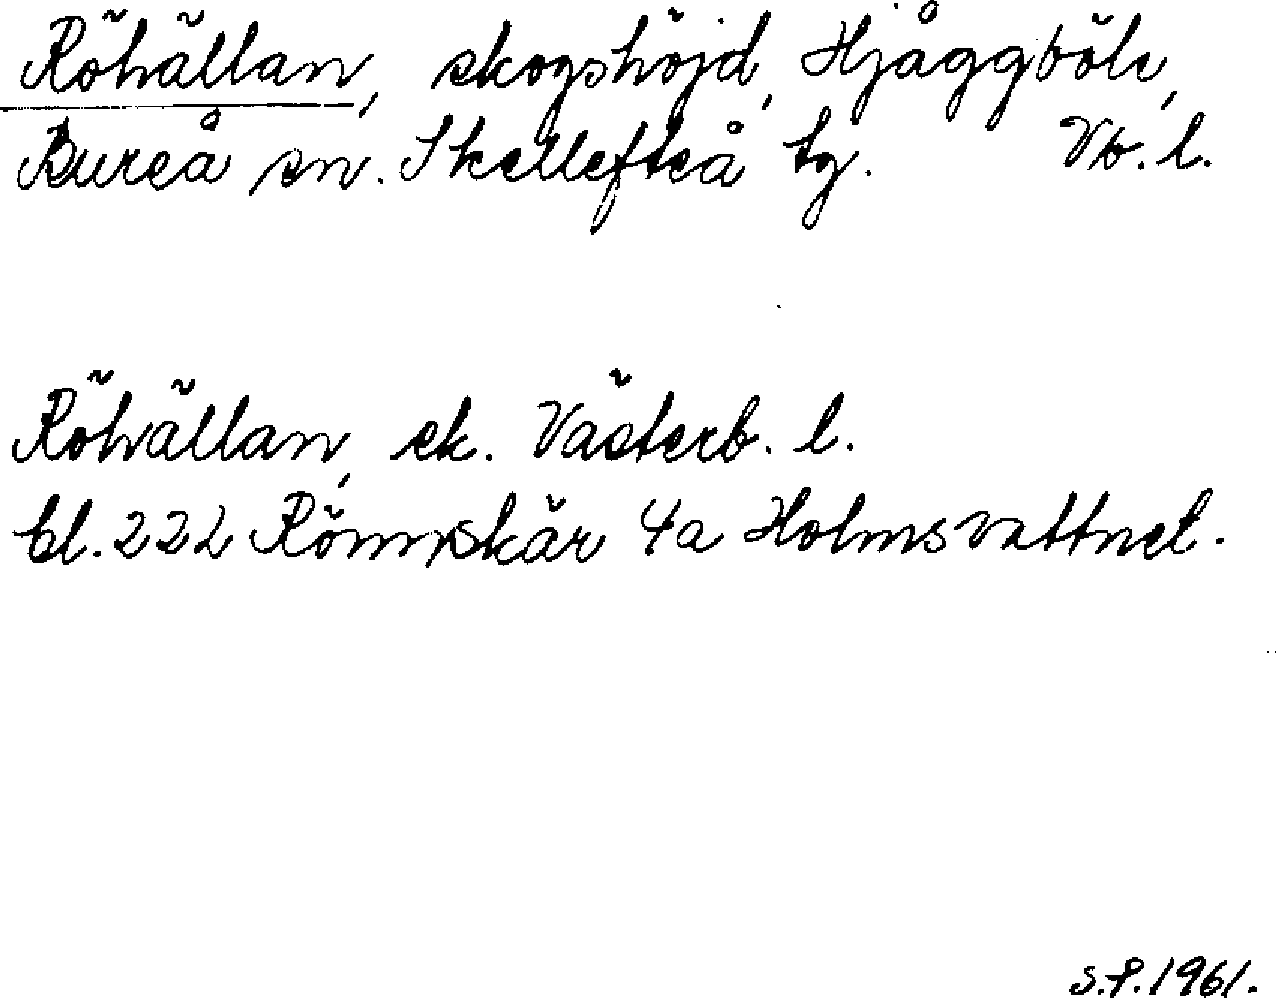 Röhällan, skogshöjd, Hjåggböle,
Bureå sn. Skellefteå tg. Vb. l.
Röhällan, ek. Västerb. l.
bl. 222 Rönnskär 4a Holmsvattnet.
S.P. 1961.